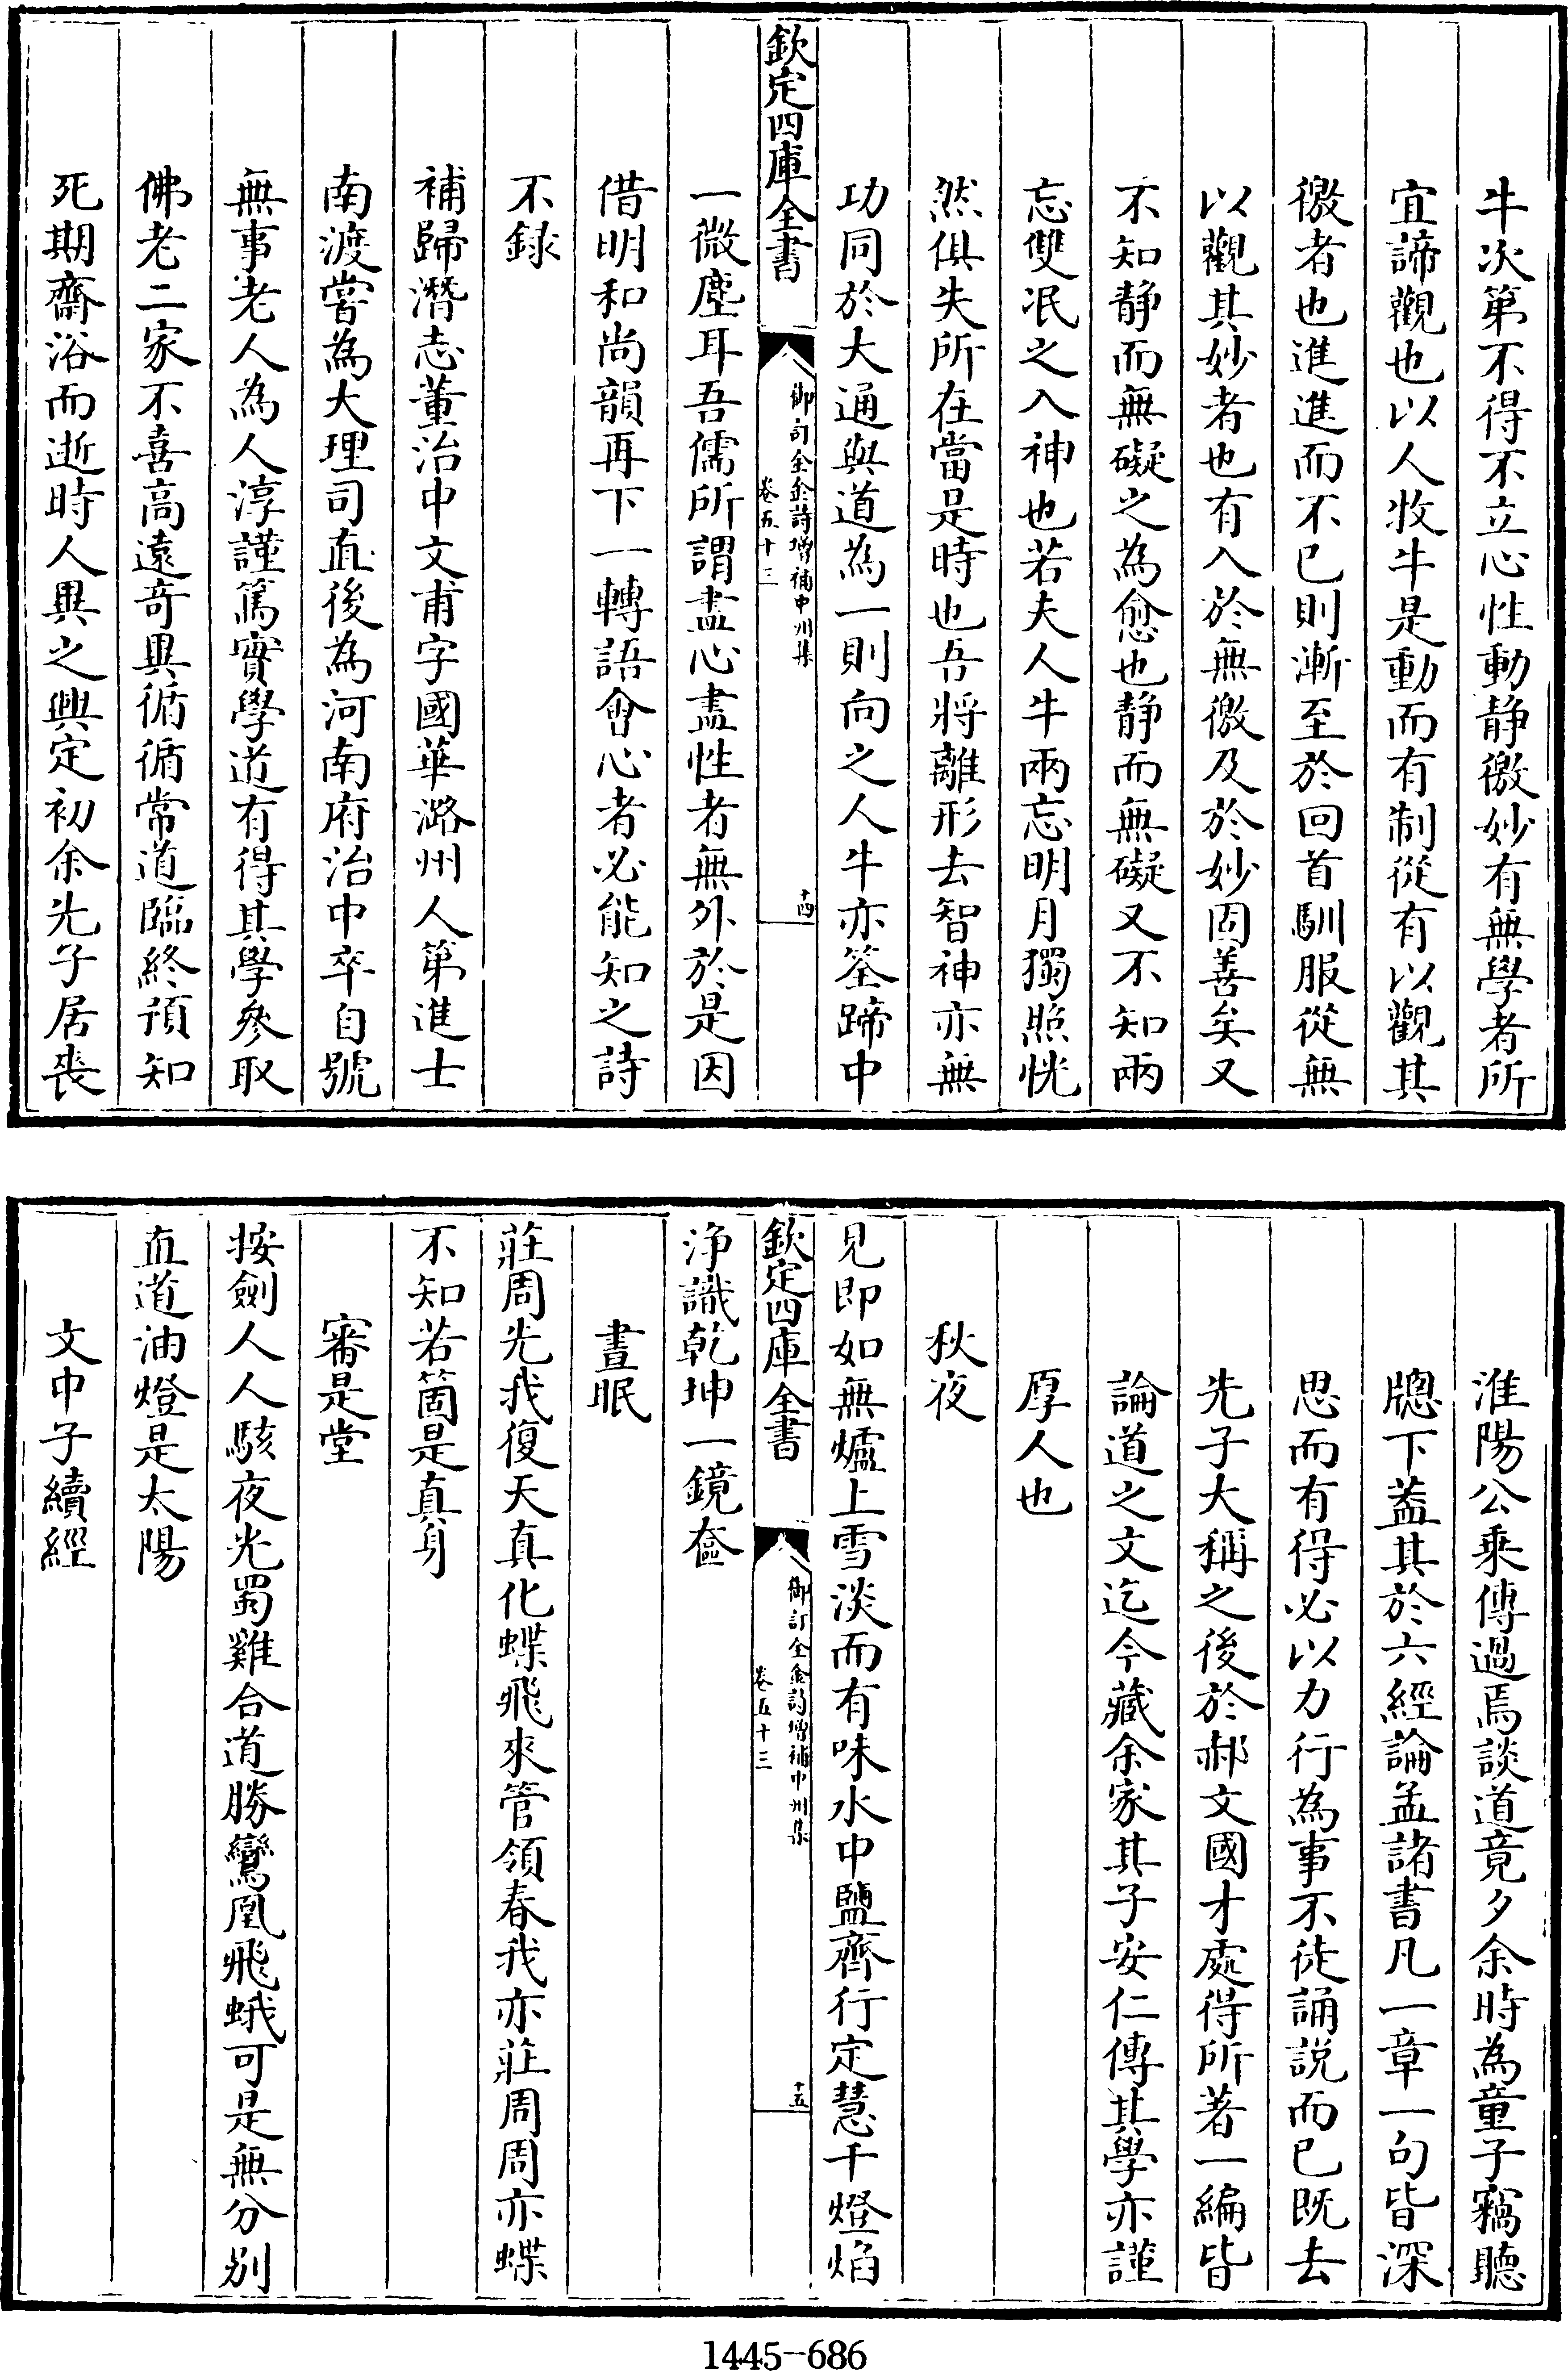 牛次第不得不立心性動静徼妙有無學者所
宜諦觀也以人牧牛是動而有制從有以觀其
徼者也進進而不已則漸至於回首馴服從無
以觀其妙者也有入於無徼及於妙固善矣又
不知静而無礙之為愈也静而無礙又不知兩
忘雙泯之入神也若夫人牛兩忘明月獨照恍
然俱失所在當是時也吾將離形去智神亦無
功同於大通與道為一則向之人牛亦筌蹄中
欽定四庫全書
御訂全金詩增補中州集
卷五十三
十四
一微塵耳吾儒所謂盡心盡性者無外於是因
借明和尚韻再下一轉語會心者必能知之詩
不録
補歸潛志董治中文甫字國華潞州人第進士
南渡嘗為大理司直後為河南府治中卒自號
無事老人為人淳謹篤實學道有得其學參取
佛老二家不喜高遠奇異循循常道臨終預知
死期齋浴而逝時人異之興定初余先子居喪
淮陽公乘傳過焉談道竟夕余時為童子竊聽
牎下葢其於六經論孟諸書凡一章一句皆深
思而有得必以力行為事不徒誦說而已既去
先子大稱之後於郝文國才處得所著一編皆
論道之文迄今藏余家其子安仁傳其學亦謹
厚人也
秋夜
見即如無爐上雪淡而有味水中鹽齊行定慧千燈焰
欽定四庫全書
御訂全金詩增補中州集
卷五十三
十五
浄識乾坤一鏡奩
晝眠
莊周先我復天真化蝶飛來管領春我亦莊周周亦蝶
不知若箇是真身
審是堂
按劍人人駭夜光蜀雞合道勝鸞凰飛蛾可是無分别
直道油燈是太陽
文中子續經
1445-686